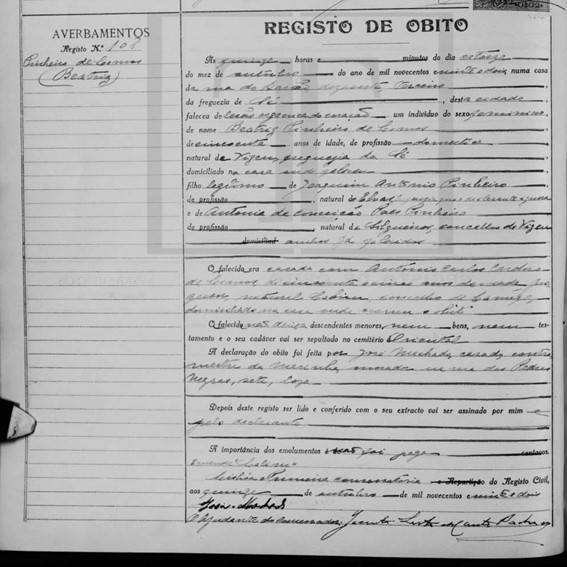 AVERBAMENTOS
Registo N.º 108
Pinheiro de Lemos
(Beatriz)
REGISTO DE OBITO
Ás quinze horas e minutos do dia catorze
do mez de outubro do ano de mil novecentos vinte e dois, numa casa
da rua do Barão, segundo,
da freguezia de Sé, desta cidade
faleceu de lesão organica do coração um individuo do sexo feminino
de nome Beatriz Pinheiro de Lemos
de cincoenta anos de idade, de profissão domestica
natural de Vizeu, freguezia da Sé
domiciliado na casa onde faleceu
filho legitimo de Joaquim Antonio Pinheiro
de profissão, natural de
e de Antonia da Conceição Pinheiro
de profissão, natural de Silgueiros, concelho de Vizeu
domiciliad ambos já falecidos
O falecido era casada com Antonio Carlos Cardoso
de Lemos de cincoenta anos de edade,
natural concelho de
domiciliado na casa onde ocorreu o obito
O falecido não deixa descendentes menores, nem bens, nem tes-
tamento e o seu cadáver vai ser sepultado no cemitério Oriental
A declaração do obito foi feita por José Machado, casado, contra
mestre da Marinha, morador na rua das Pedras
Negras, sete, loja
Depois deste registo ser lido e conferido com o seu extracto vai ser assinado por mim e
pelo declarante
A importância dos emolumentos não foi paga centavos
Lisboa Primeira conservatoria e Repartição do Registo Civil,
aos quinze de outubro de mil novecentos vinte e dois
José Machado
O Ajudante do Conservador,